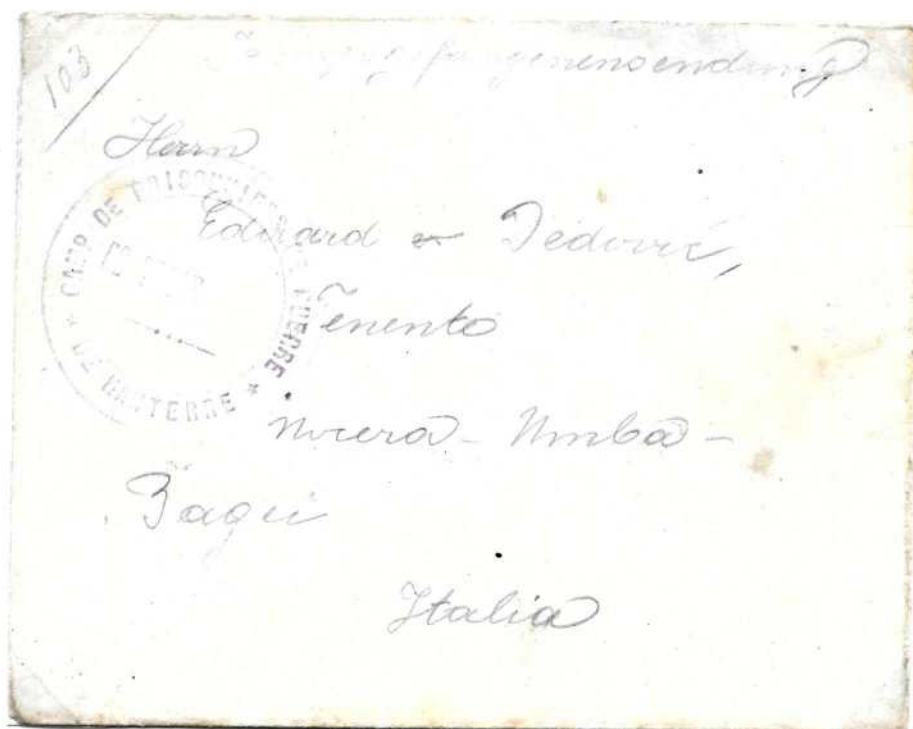 103
Kriegsgefangenensendung
Herrn
Eduard Tedović,
Tenento
Nocera - Umba -
Bagni
Italia
CAMP DE PRISONNIERS DE GUERRE
* DE NANTERRE *